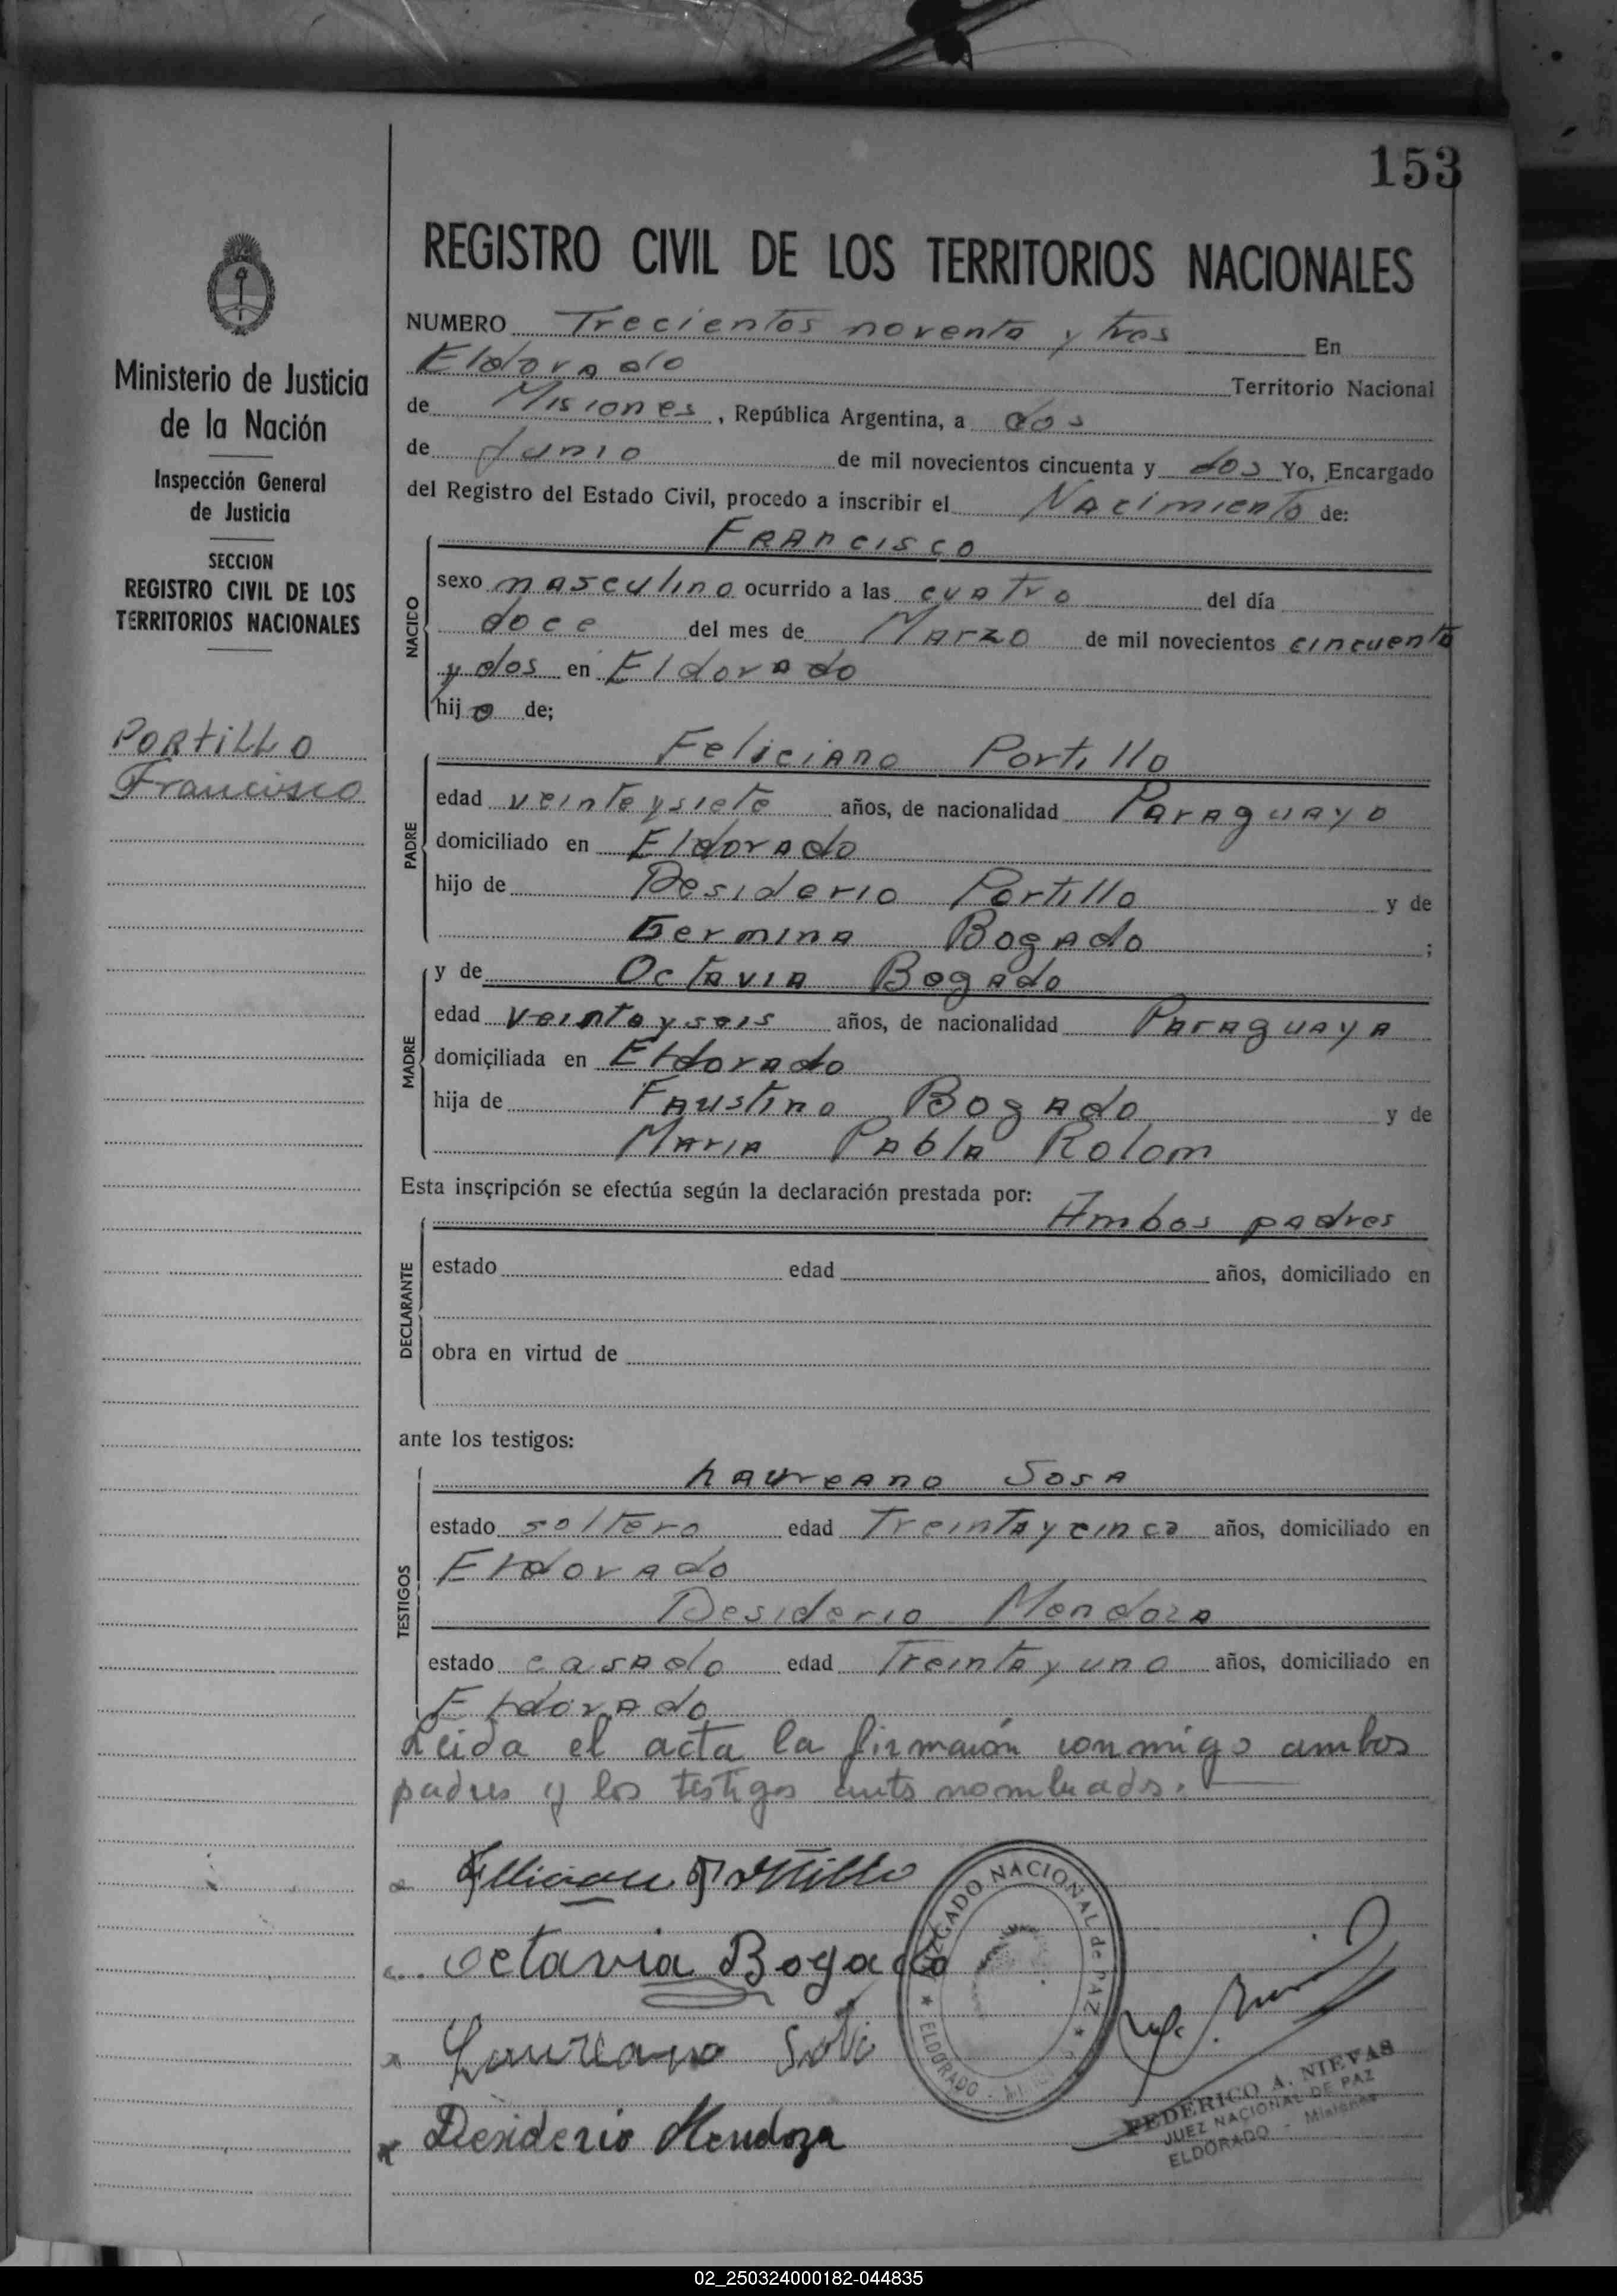 153
REGISTRO CIVIL DE LOS TERRITORIOS NACIONALES
Ministerio de Justicia
de la Nación
Inspección General
de Justicia
SECCION
REGISTRO CIVIL DE LOS
TERRITORIOS NACIONALES
PORTILLO
Francisco
NUMERO Trecientos noventa y tres En
Eldorado Territorio Nacional
de Misiones, República Argentina, a dos
de Junio de mil novecientos cincuenta y dos Yo, Encargado
del Registro del Estado Civil, procedo a inscribir el Nacimiento de:
NACIDO
Francisco
sexo masculino ocurrido a las cuatro del día
doce del mes de Marzo de mil novecientos cincuenta
y dos en Eldorado
hijo de;
PADRE
Feliciano Portillo
edad veinte y siete años, de nacionalidad Paraguayo
domiciliado en Eldorado
hijo de Desiderio Portillo y de
Germina Bogado ;
MADRE
y de Octavia Bogado
edad veinte y seis años, de nacionalidad Paraguaya
domiçiliada en Eldorado
hija de Faustino Bogado y de
Maria Pabla Rolom
Esta insçripción se efectúa según la declaración prestada por:
DECLARANTE
Ambos padres
estado edad años, domiciliado en
obra en virtud de
ante los testigos:
TESTIGOS
Laureano Sosa
estado soltero edad Treinta y cinco años, domiciliado en
Eldorado
Desiderio Mendoza
estado casado edad Treinta y uno años, domiciliado en
Eldorado
Leida el acta la firmaron conmigo ambos
padres y los testigos ants nombrados.
Portillo
Octavia Bogado
Laureano
Desiderio Mendoza
JUZGADO NACIONAL de PAZ
ELDORADO
FEDERICO A. NIEVAS
JUEZ NACIONAL DE PAZ
ELDORADO - Misiones
02_250324000182-044835